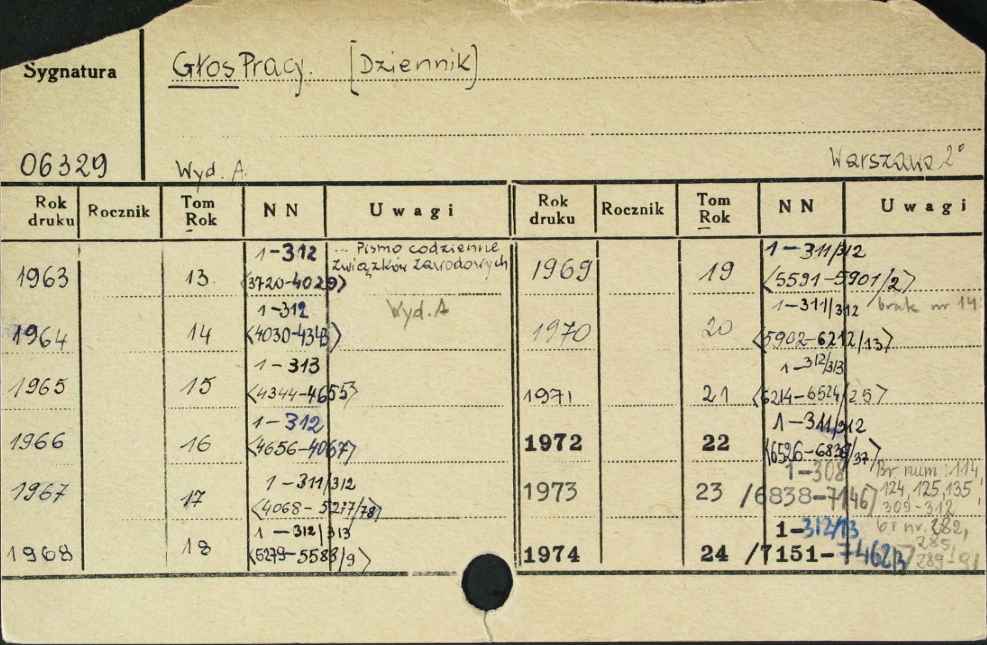 Głos Pracy. [Dziennik]
Sygnatura
06329 Wyd. A. Warszawa 2°
Rok druku Rocznik Tom Rok NN Uwagi Rok druku Rocznik Tom Rok NN Uwagi
1-312 ... Pismo codzienne 1-311/312
1963 13. <3720-4029> związków zawodowych 1969 19 <5591-5901/2>
1-312 Wyd. A 1-311/312 brak nr 14
1964 14 <4030-4343> 1970 20 <5902-6212/13>
1-313 1-312/313
1965 15 <4344-4655> 1971 21 <6214-6524/25>
1-312 1-311/312
1966 16 <4656-4067> 1972 22 <6526-6836/37>
1-308 Br num: 114,
1967 1-311/312 1973 23 /6838-7146> 124, 125, 135,
17 <4068-5277/78> 309-312
1-312/313 1-312/13 br nr. 282,
1968 18 <5279-5588/9> 1974 24 /7151-7462/3> 285,
289-91